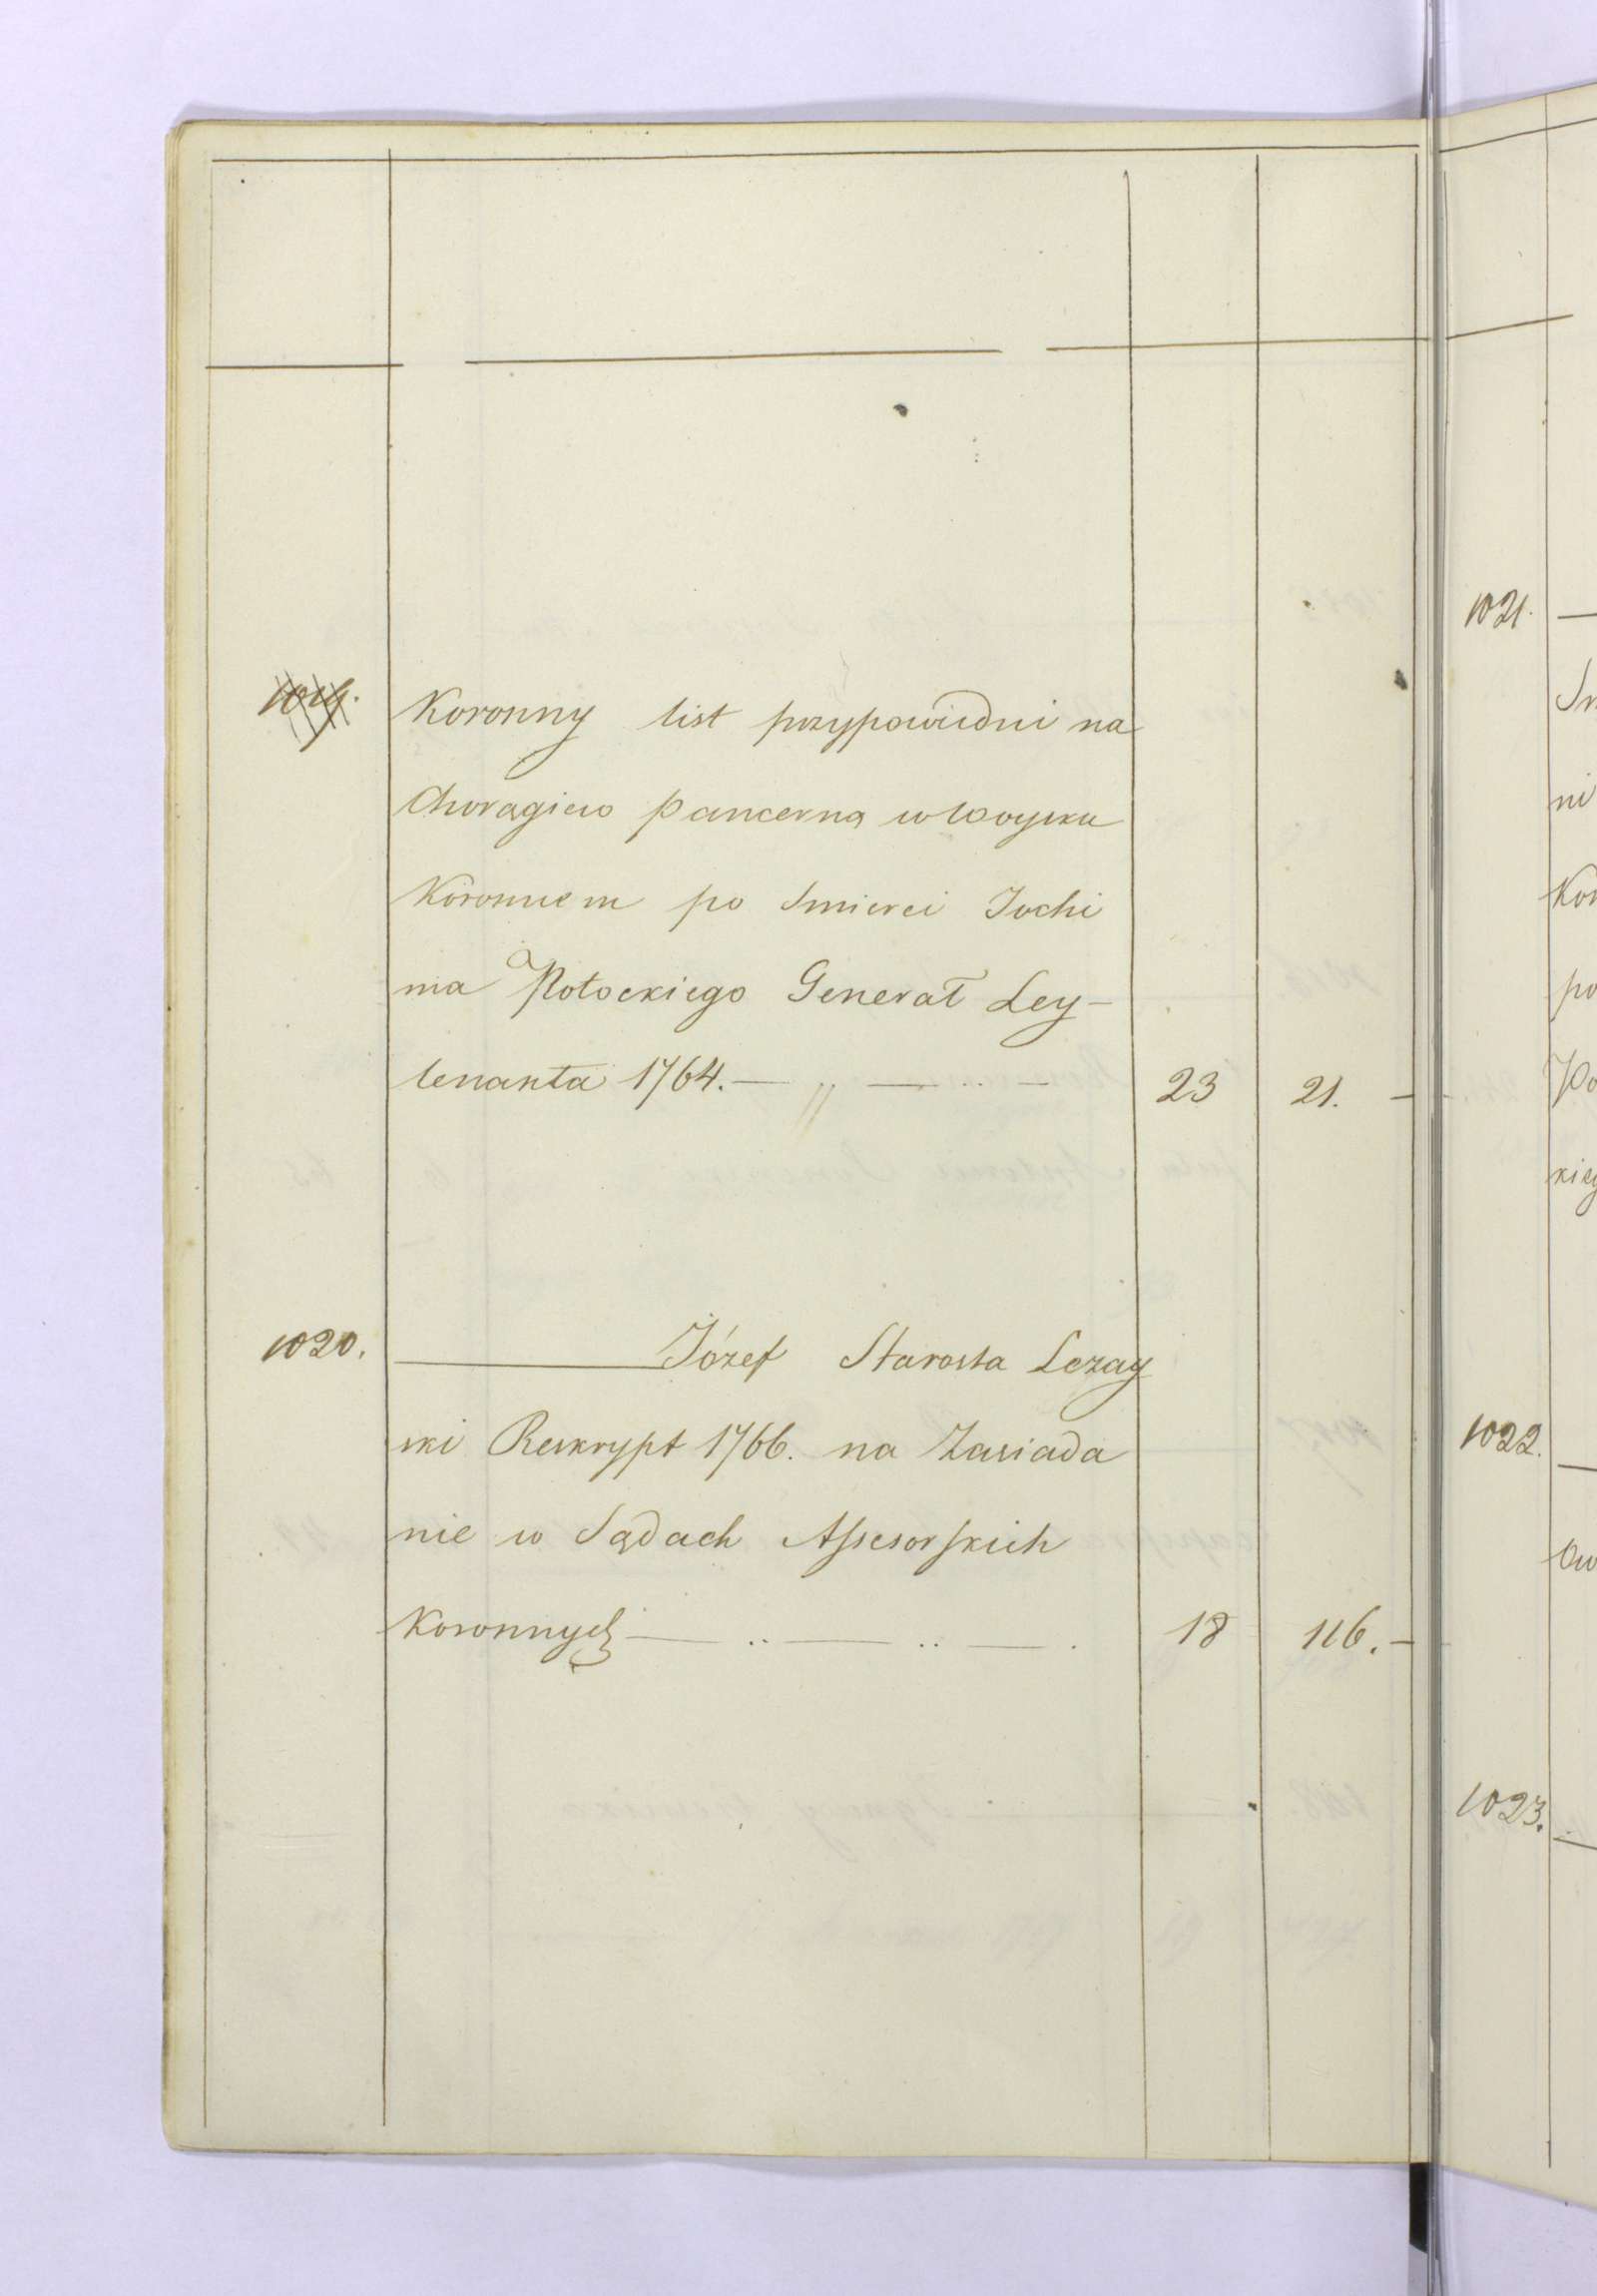 1019.
Koronny list przypowiedni na
Chorągiew pancerną w Woysku
Koronnem po Smierci Jochi
ma Potockiego Generał Ley-
tenanta 1764. — „ — .. — 23 21. —
1020. ——— Józef Starosta Leżay
ski Reskrypt 1766. na Zasiada
nie w Sądach Assesorskich
Koronnych — .. — .. — . 18 116. —
1021. —
ni
Kor
po
Po
kieg
1022. —
1023. —